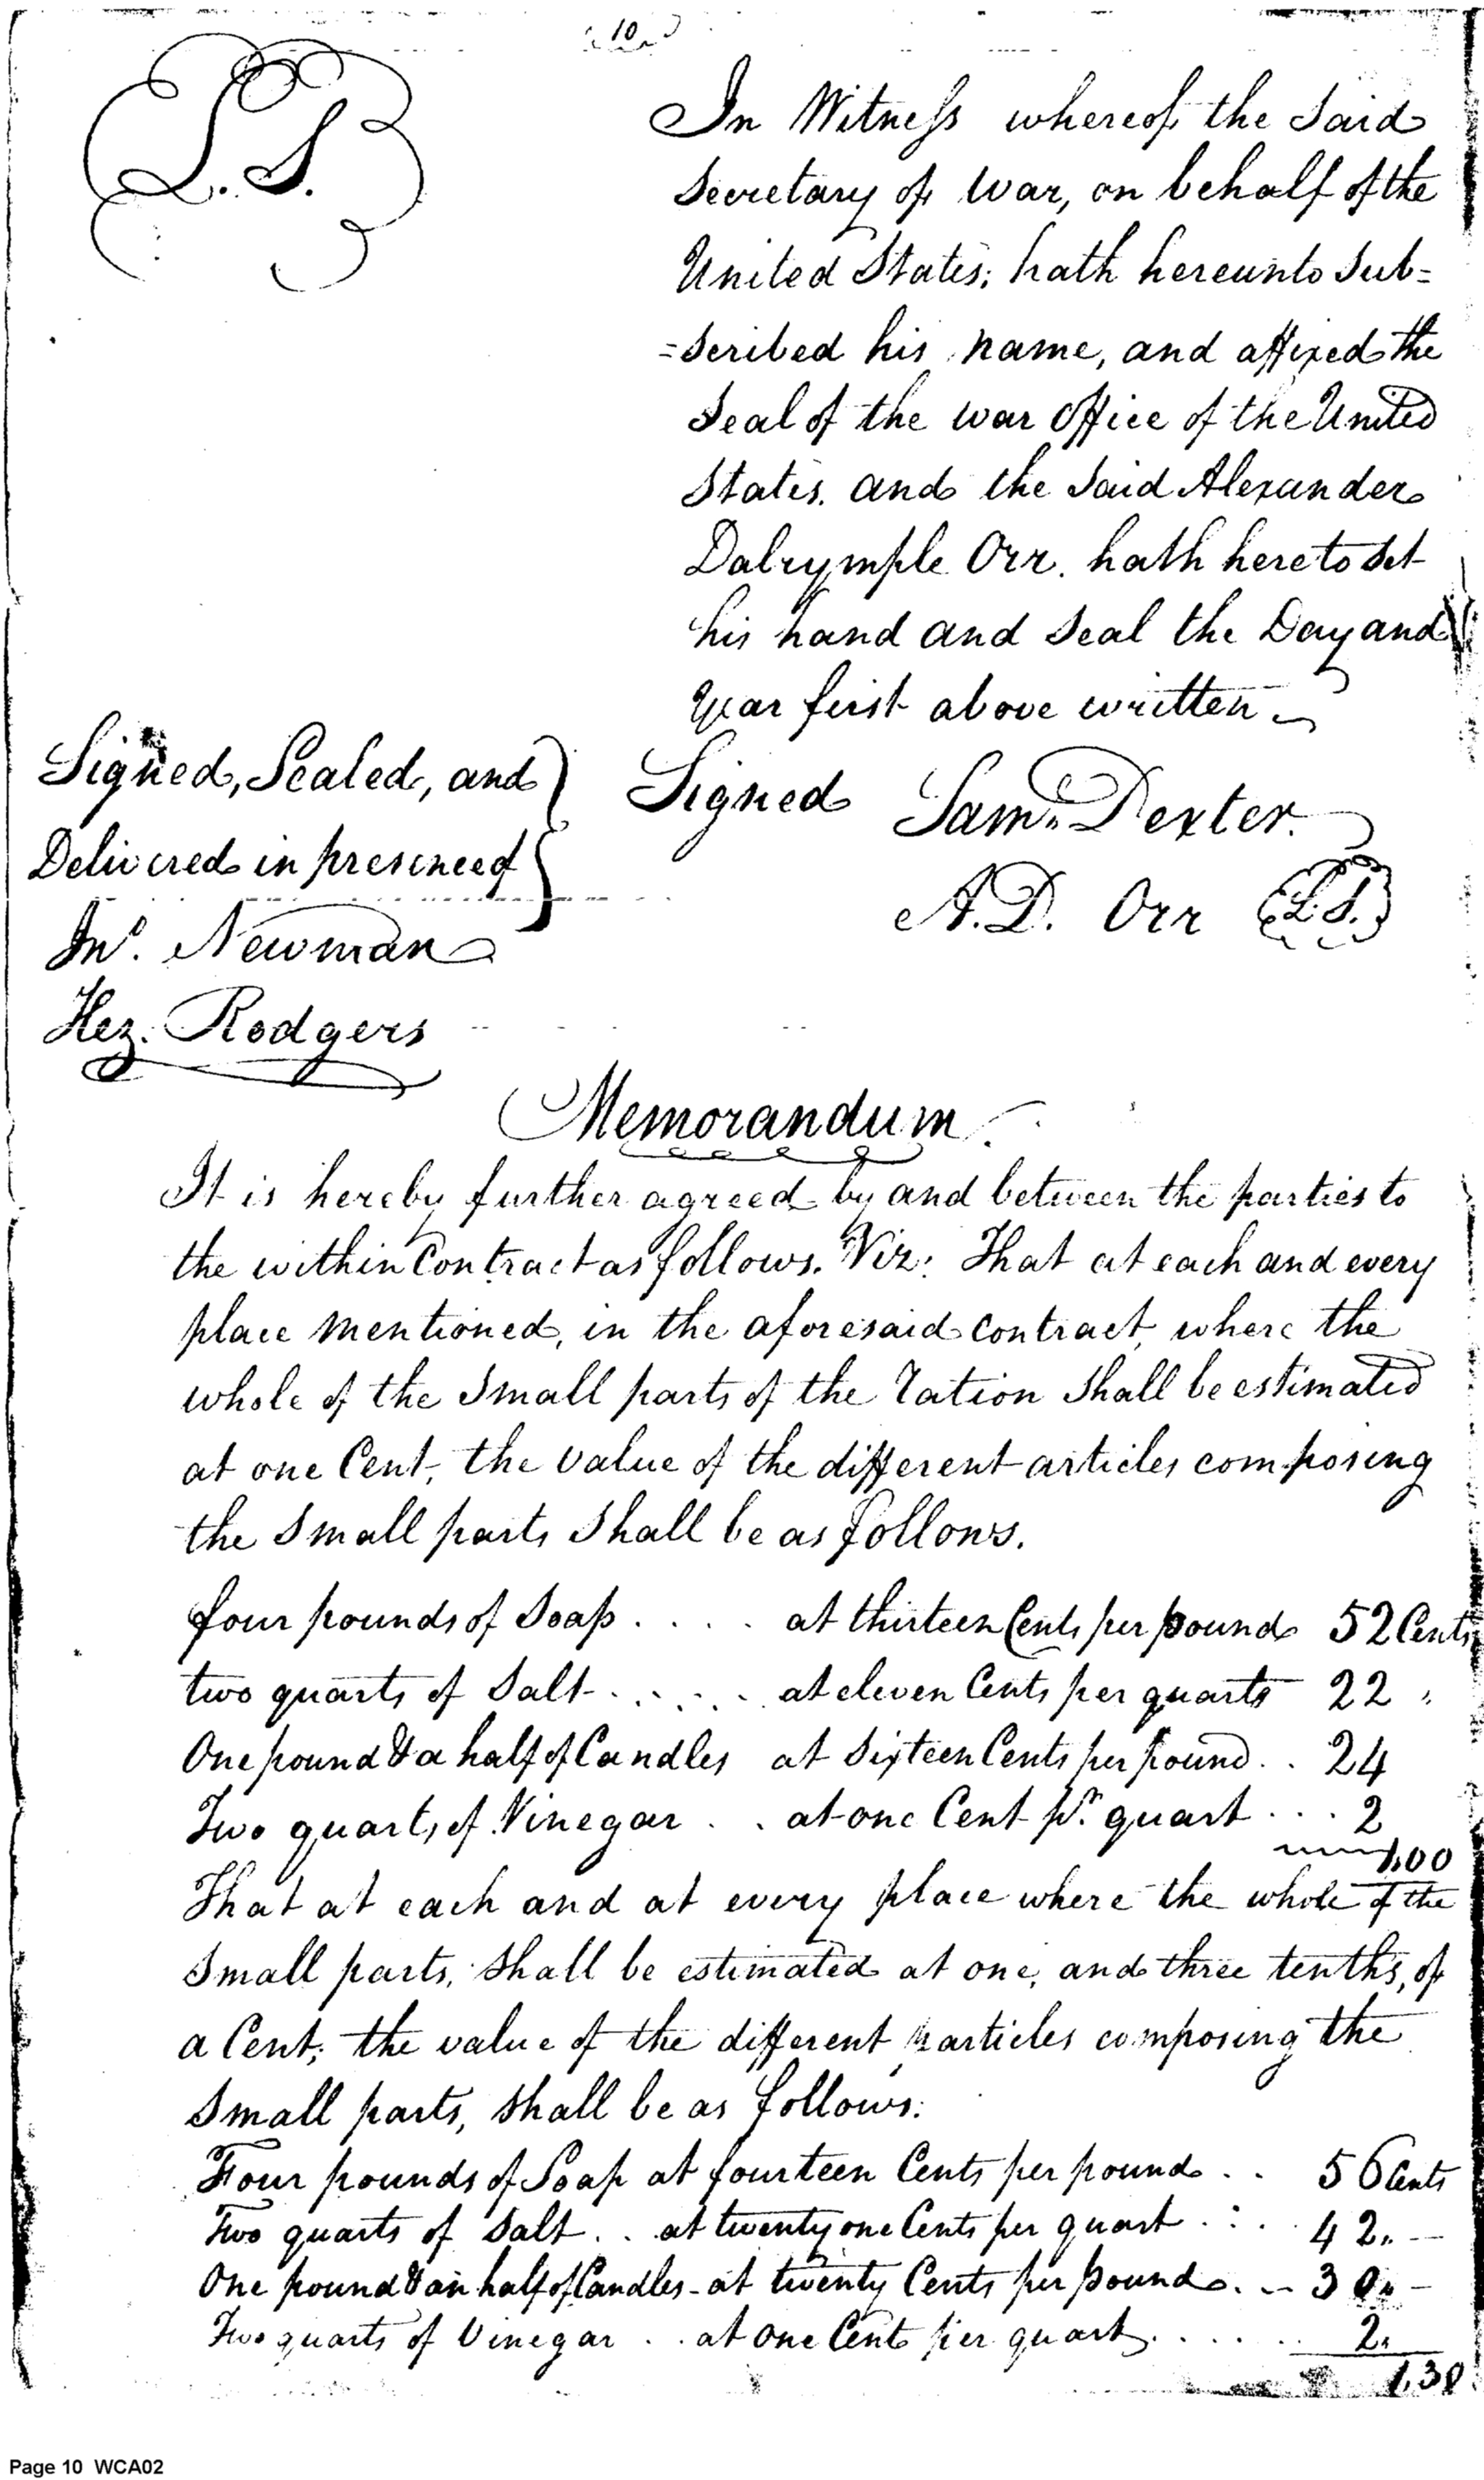 10
L.S.
In Witness whereof, the Said
Secretary of War, on behalf of the
United States; hath hereunto Sub=
=scribed his name, and affixed the
Seal of the War Office of the United
States. and the Said Alexander
Dalrymple Orr. hath hereto Set
his hand and Seal the Day and
Year first above written
Signed, Sealed, and
Delivered in presence of
Jno. Newman
Hez. Rodgers
Signed Saml. Dexter.
A.D. Orr L.S.
Memorandum.
It is hereby further agreed by and between the parties to
the within Contract as follows. Viz: That at each and every
place mentioned, in the aforesaid contract, where the
whole of the Small parts of the ration Shall be estimated
at one Cent, the value of the different articles composing
the Small parts Shall be as follows.
four pounds of Soap .... at thirteen Cents per pound 52 Cents
two quarts of Salt ..... at eleven Cents per quarts 22 "
One pound & a half of Candles at Sixteen Cents per pound .. 24
Two quarts of Vinegar .. at one Cent pr. quart ... 2
1.00
That at each and at every place where the whole of the
Small parts, Shall be estimated at one, and three tenths, of
a Cent; the value of the different particles composing the
Small parts, Shall be as follows:
Four pounds of Soap at fourteen Cents per pound .. 56 Cents
Two quarts of Salt .. at twenty one Cents per quart .... 42. —
One pound & an half of Candles - at twenty Cents per pound. .. 30. —
Two quarts of Vinegar .. at one Cent per quart ..... 2.
1.30
Page 10 WCA02